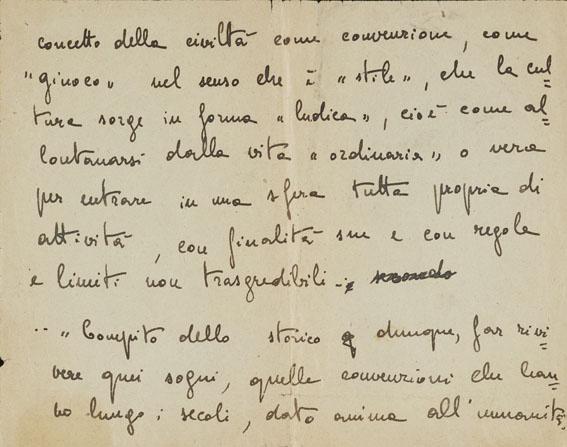 concetto della civiltà come convenzione, come
"giuoco" nel senso che è "stile", che la cul=
tura sorge in forma "ludica", cioè come al=
lontanarsi dalla vita "ordinaria" o vera
per entrare in una sfera tutta propria di
attività, con finalità sue e con regole
e limiti non trasgredibili -; secondo
.. "Compito dello storico è dunque, far rivi=
vere quei sogni, quelle convenzioni che han=
no lungo i secoli, dato anima all'umanità.